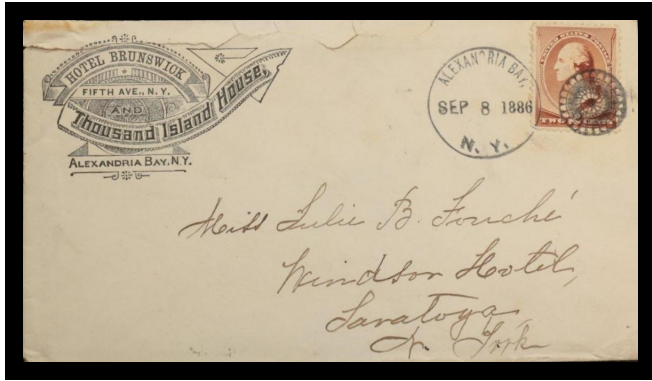 HOTEL BRUNSWICK
FIFTH AVE., N.Y.
AND
Thousand Island House,
ALEXANDRIA BAY, N.Y.
ALEXANDRIA BAY,
SEP 8 1886
N. Y.
UNITED STATES POSTAGE
TWO
Miss Julie B. Fouché
Windsor Hotel,
Saratoga
N. York